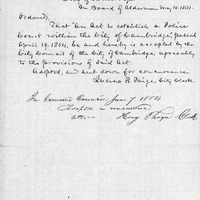 In Board of Aldermen, May 10. 1854.
Ordered,
That "An Act to establish a Police
Court within the City of Cambridge," passed
April 19. 1854, be and hereby is accepted by the
City Council of the City of Cambridge, agreeably
to the provisions of said Act.
Adopted, and sent down for concurrence.
Lucius R. Paige, City Clerk.
In Common Council June 7 1854
Adopted in concurrence.
attest Clerk